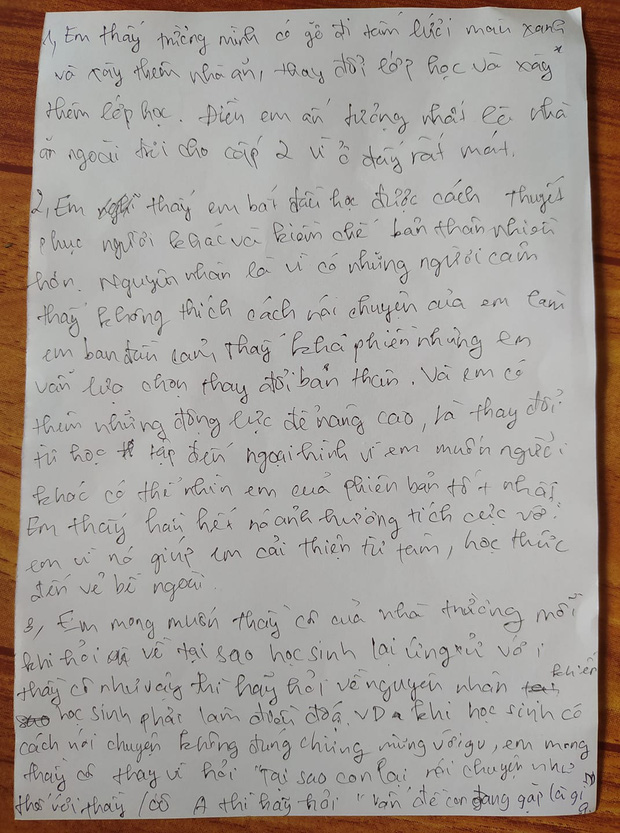 1, Em thấy trường mình có gỡ đi tấm lưới màu xanh
và xây thêm nhà ăn, thay đổi lớp học và xây
thêm lớp học. Điều em ấn tượng nhất là nhà
ăn ngoài trời cho cấp 2 vì ở đấy rất mát.
2, Em thấy em bắt đầu học được cách thuyết
phục người khác và kiềm chế bản thân nhiều
hơn. Nguyên nhân là vì có những người cảm
thấy không thích cách nói chuyện của em làm
em ban đầu cảm thấy khá phiền nhưng em
vẫn lựa chọn thay đổi bản thân. Và em có
thêm những động lực để nâng cao, và thay đổi
từ học tập đến ngoại hình vì em muốn người
khác có thể nhìn em của phiên bản tốt nhất
Em thấy hầu hết nó ảnh hưởng tích cực với
em vì nó giúp em cải thiện từ tâm, học thức
đến vẻ bề ngoài.
3, Em mong muốn thầy cô của nhà trường mỗi
khi hỏi về tại sao học sinh lại ứng xử với
thầy cô như vậy thì hãy hỏi về nguyên nhân khiến
học sinh phải làm điều đó. VD khi học sinh có
cách nói chuyện không đúng chừng mừng với gv, em mong
thầy cô thay vì hỏi "Tại sao con lại nói chuyện như
thế với thầy /cô A thì hãy hỏi "Vấn đề con đang gặp là gì